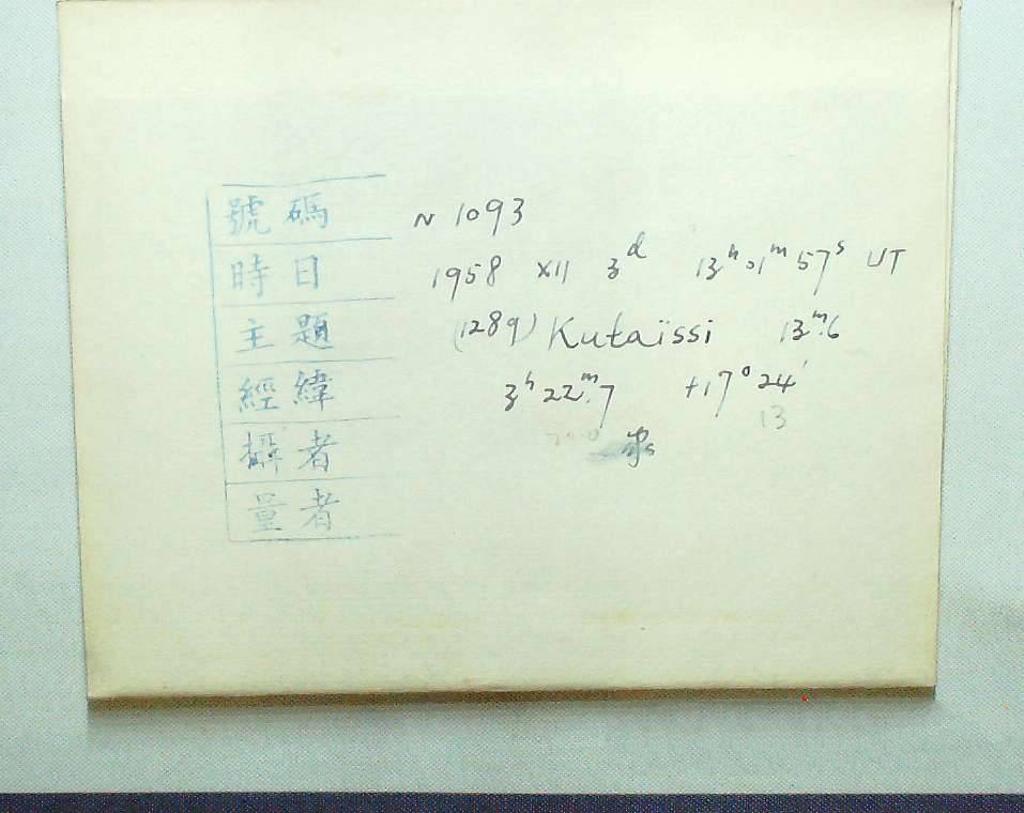 號碼 N 1093
時日 1958 XII 3ᵈ 13ʰ01ᵐ57ˢ UT
主題 (1289) Kutaïssi 13ᵐ.6
經緯 3ʰ22ᵐ.7 +17°24′
13
攝者
量者